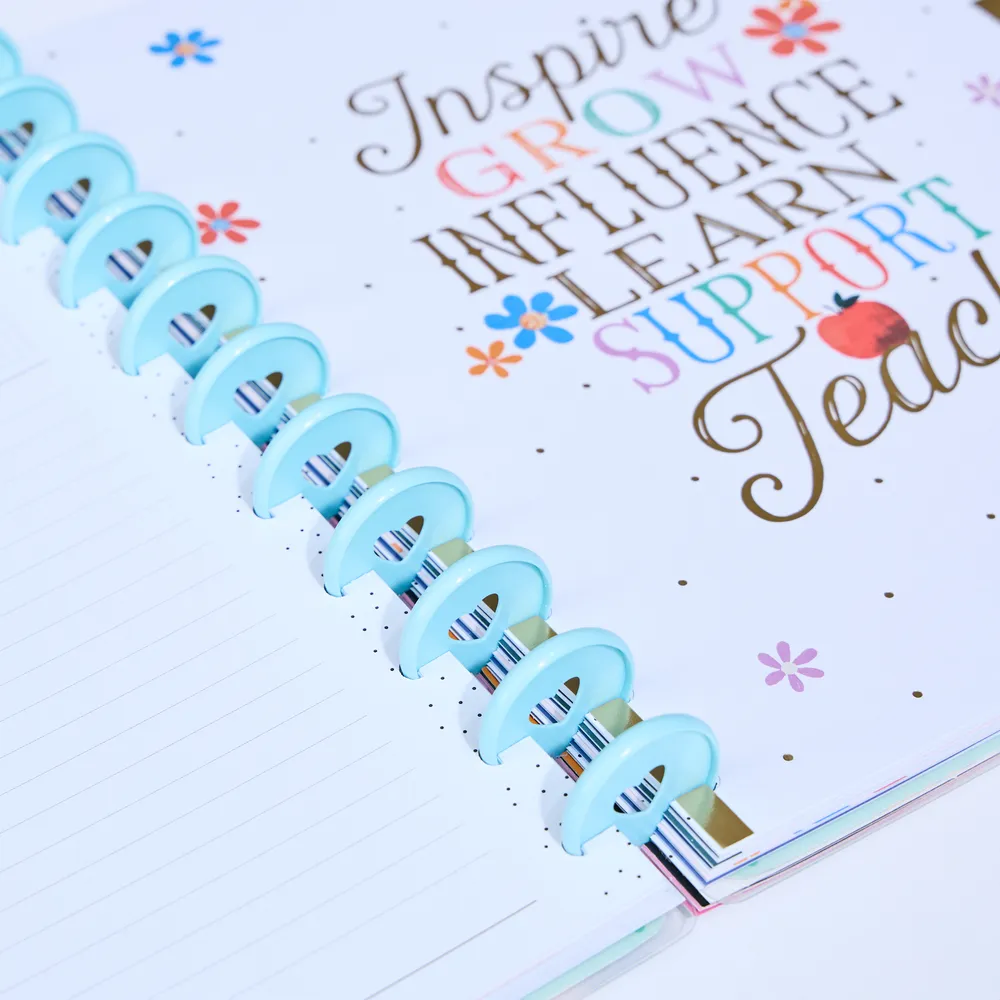 Inspire
GROW
INFLUENCE
LEARN
SUPPORT
Teac